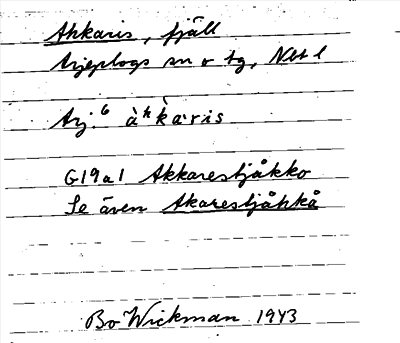 Ahkaris, fjäll
Arjeplogs sn o tg, Nbt l
Arj. 6 àʰkàris
G19a1 Akkarestjåkko
Se även Akarestjåhkå
Bo Wickman 1943